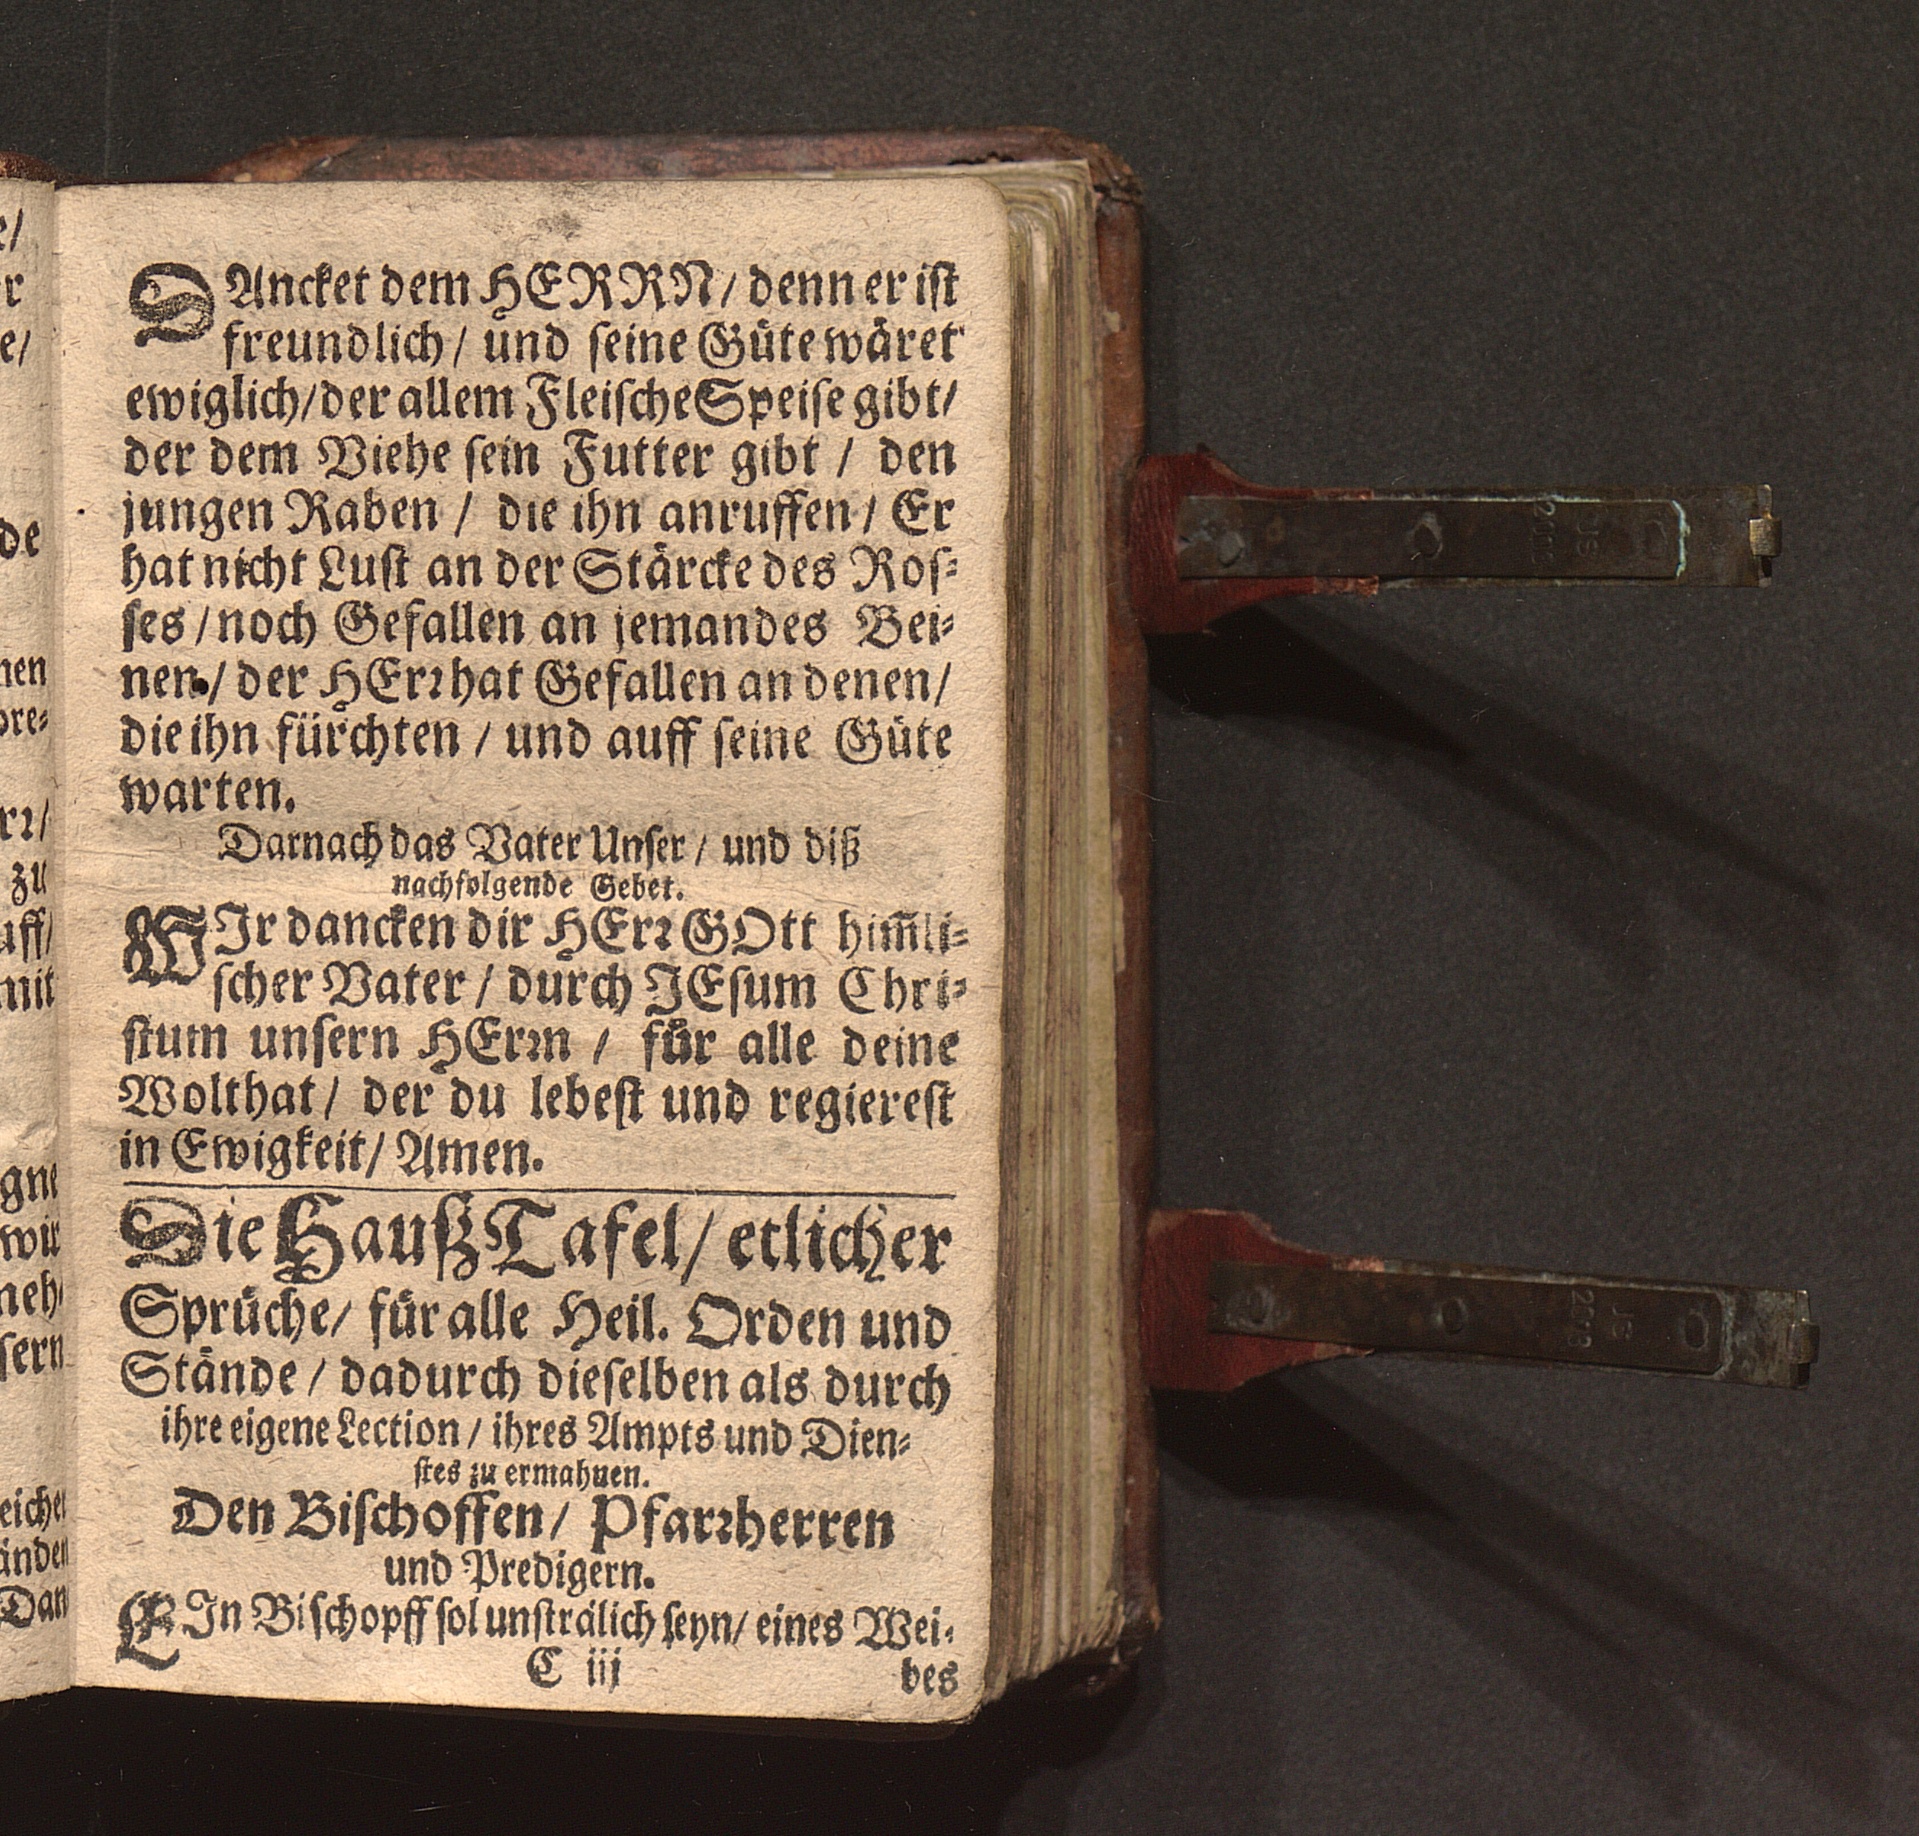 DAncket dem HERRN/ denn er iſt
freundlich/ und ſeine Guͤte waͤret
ewiglich/ der allem Fleiſche Speiſe gibt/
der dem Viehe ſein Futter gibt / den
jungen Raben / die ihn anruffen / Er
hat nicht Luſt an der Staͤrcke des Roſ⸗
ſes / noch Gefallen an jemandes Bei⸗
nen / der HErꝛ hat Gefallen an denen/
die ihn fuͤrchten / und auff ſeine Guͤte
warten.
Darnach das Vater Unſer / und diß
nachfolgende Gebet.
WIr dancken dir HErꝛ GOtt him̃li⸗
ſcher Vater / durch JEſum Chri⸗
ſtum unſern HErꝛn / fuͤr alle deine
Wolthat / der du lebeſt und regiereſt
in Ewigkeit/ Amen.
Die Hauß Tafel/ etlicher
Spruͤche/ fuͤr alle Heil. Orden und
Staͤnde / dadurch dieſelben als durch
ihre eigene Lection / ihres Ampts und Dien⸗
ſtes zu ermahnen.
Den Biſchoffen/ Pfarꝛherren
und Predigern.
EIn Biſchopff ſol unſtraͤlich ſeyn/ eines Wei⸗
C iij bes